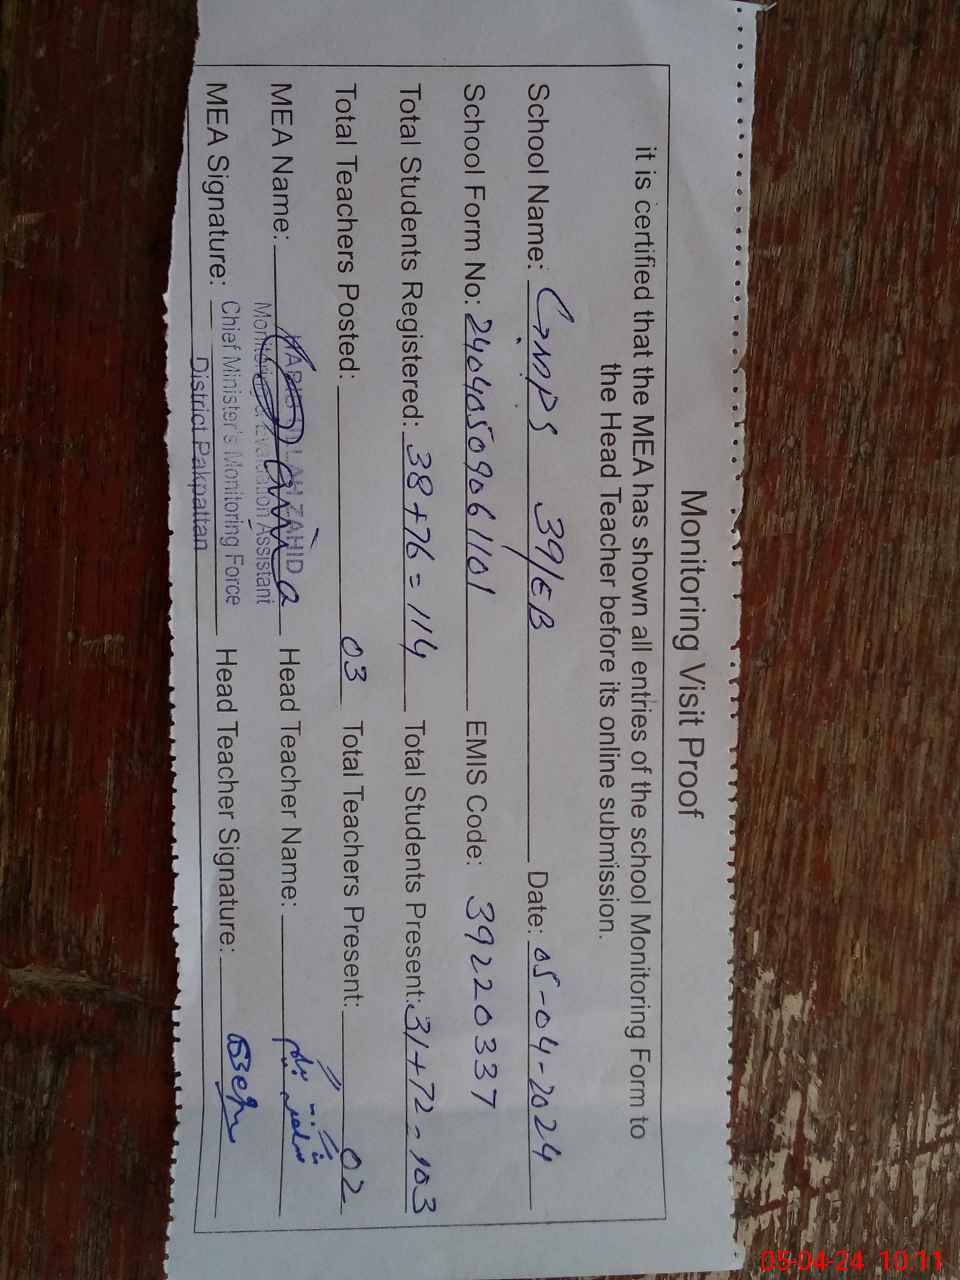 Monitoring Visit Proof
it is certified that the MEA has shown all entries of the school Monitoring Form to
the Head Teacher before its online submission.
School Name: GMPS 39/EB Date: 05-04-2024
School Form No: 24040509061101 EMIS Code: 39220337
Total Students Registered: 38+76=114 Total Students Present: 31+72-103
Total Teachers Posted: 03 Total Teachers Present: 02
MEA Name: ZAHID Head Teacher Name:
Monitoring & Evaluation Assistant
MEA Signature: Chief Minister's Monitoring Force Head Teacher Signature:
District Pakpattan
05-04-24 10:11